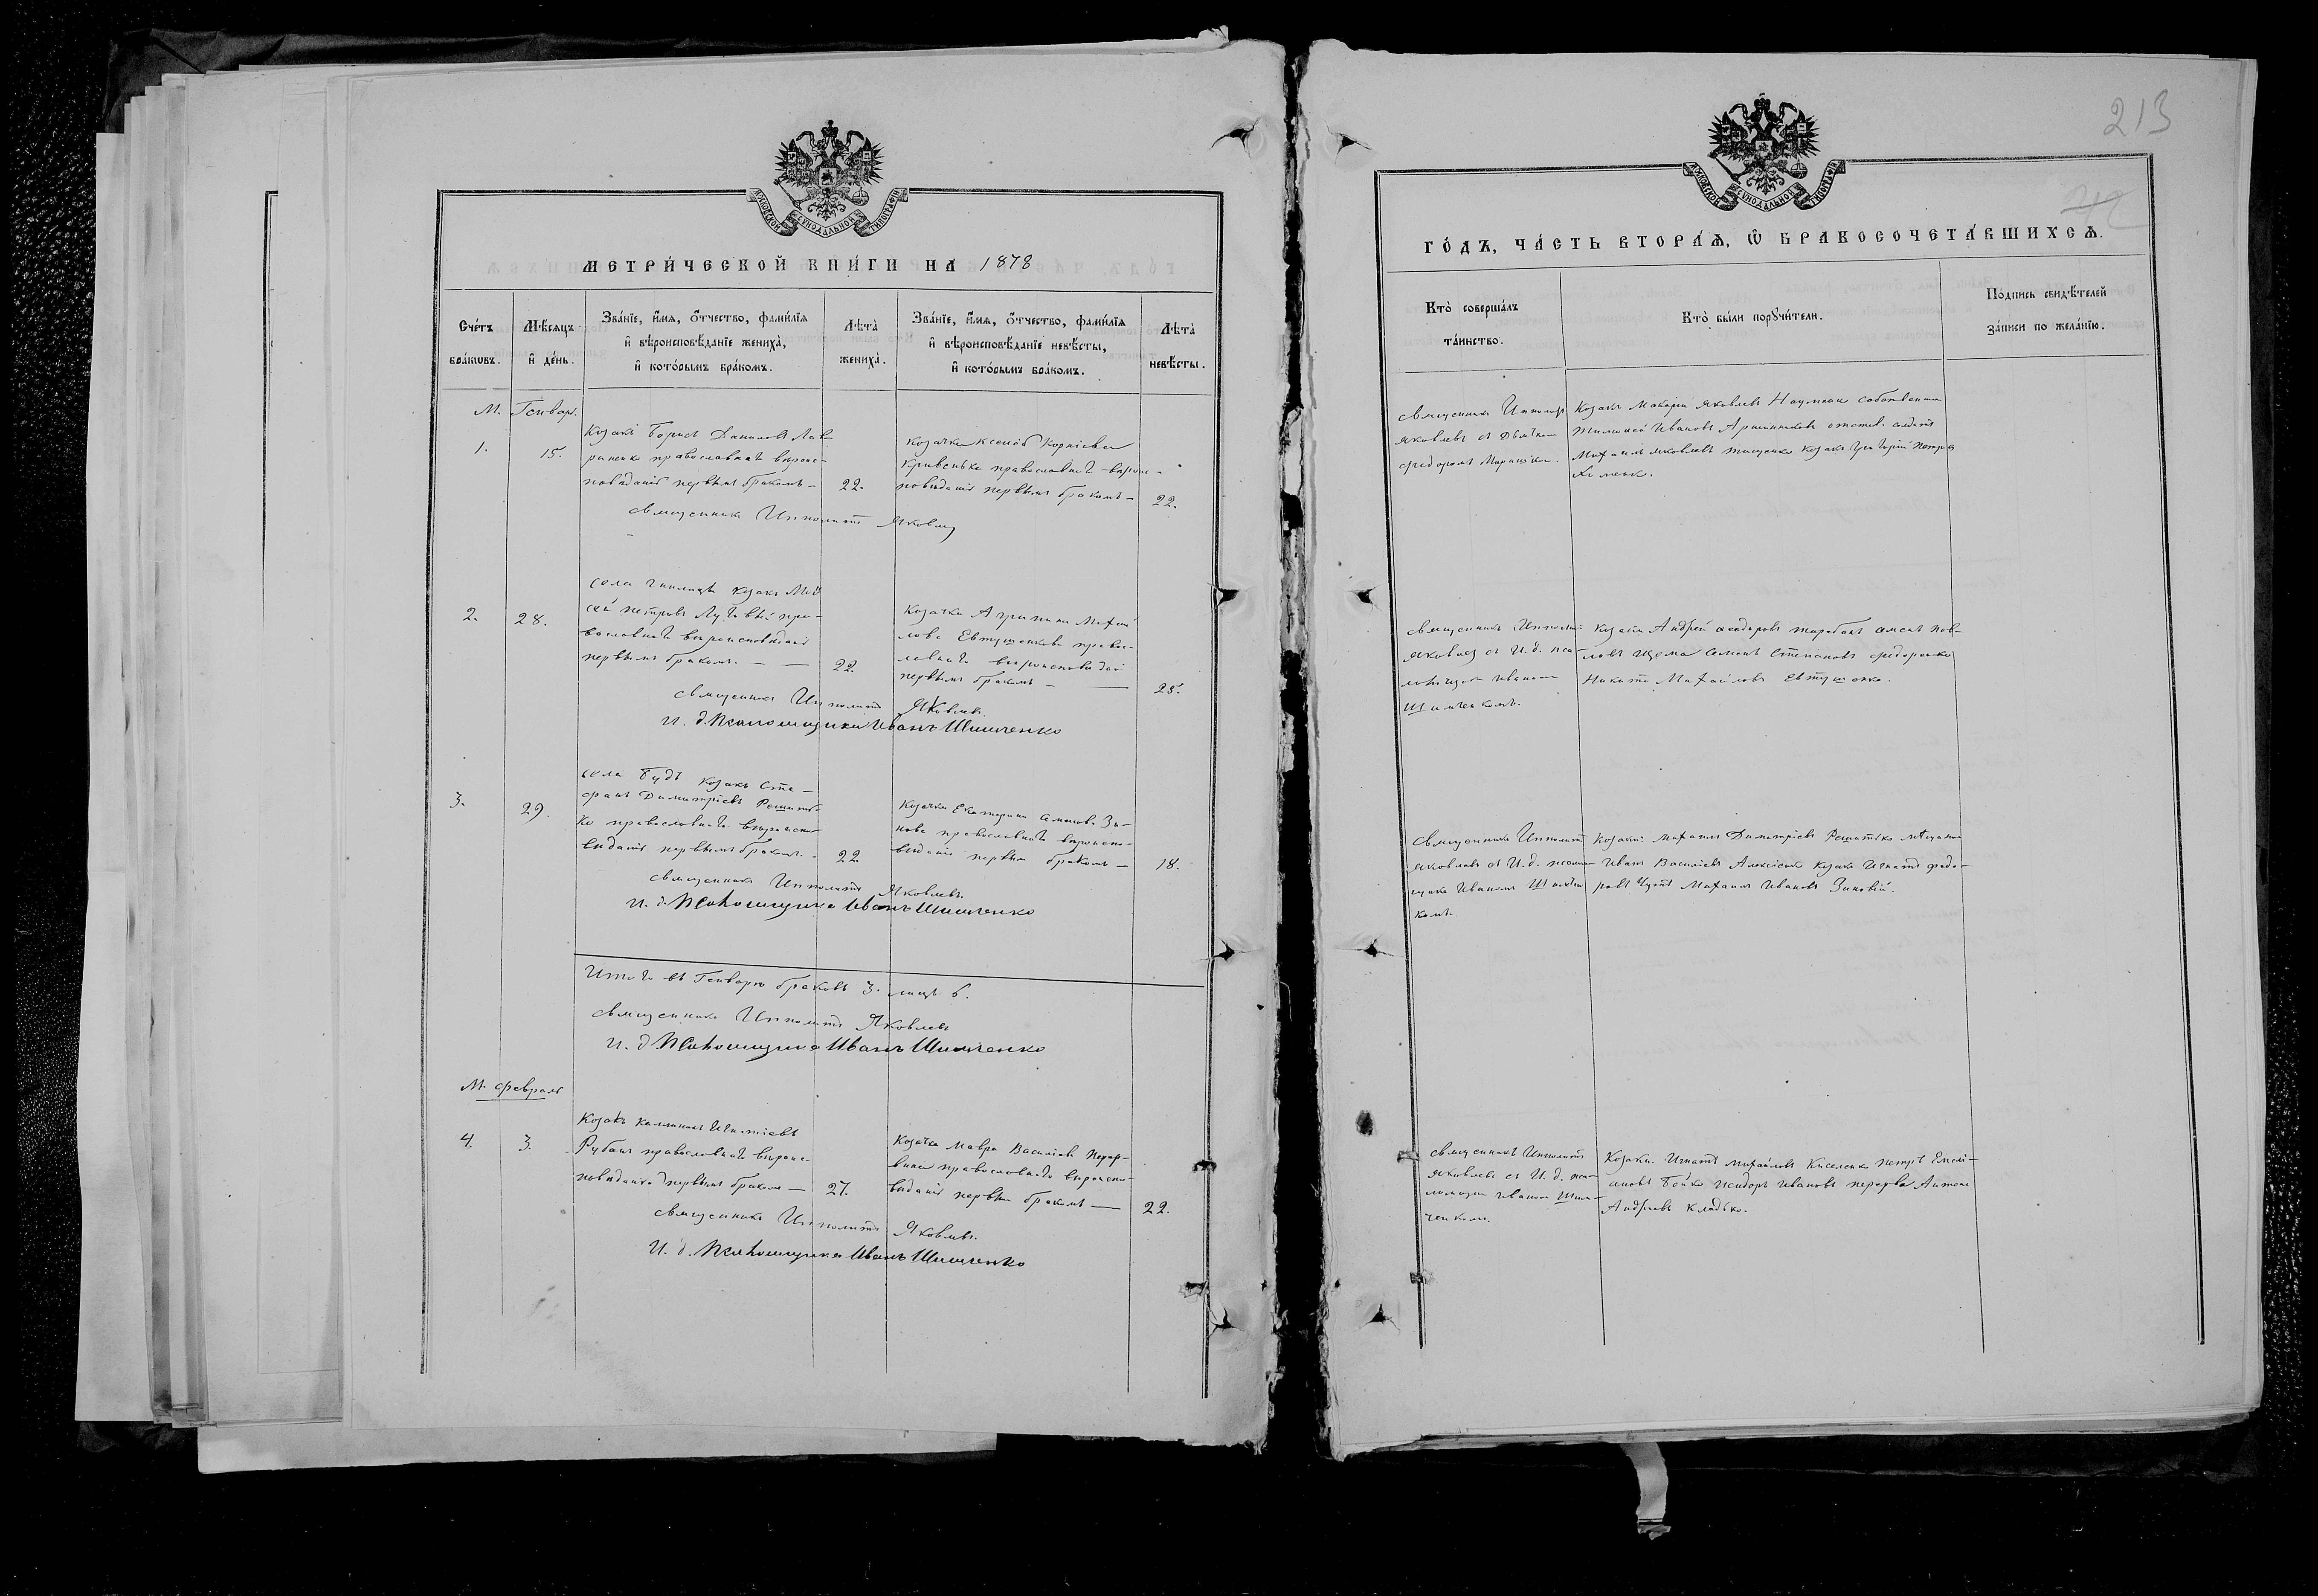 МЕТРИ́ЧЕСКОЙ КНИ́ГИ НА 1878
Сче́тъ бра́ковъ.
Мѣ́сяцъ и҆ де́нь.
Зва́нїе, и҆́мѧ, ѻ҆́тчество, фами́лїѧ
и҆ вѣроисповѣ́данїе жениха̀,
и҆ кото́рымъ бра́комъ.
Лѣта̀
жениха̀.
Зва́нїе, и҆́мѧ, ѻ҆́тчество, фами́лїѧ
и҆ вѣроисповѣ́данїе невѣ́сты,
и҆ кото́рымъ бра́комъ.
Лѣта̀
невѣ́сты.
М. Генвар.
1.
15.
Козакъ Борисъ Даниловъ Лав-
риненко православнаго вѣроис-
повѣданія первымъ бракомъ –
22.
Козачка Ксенія Корніева
Кривенька православнаго вѣроис-
повѣданія первымъ бракомъ –
22.
священникъ Ипполитъ Яковлев
2.
28.
села козакъ Мой
сей Петровъ Луговый пра-
вославнаго вѣроисповѣданія
первымъ бракомъ. – —
22.
Козачка Агрипина Михай
лова Евтушенкова правос-
лавнаго вѣроисповѣданія
первымъ бракомъ – —
25.
священникъ Ипполитъ Яковлевъ.
И. д. Псаломщика Иванъ Шимченко
3.
29.
села Будъ козакъ Сте-
фанъ Димитріевъ Решеть-
ко православнаго вѣроиспо-
вѣданія первымъ бракомъ. –
22.
Козачка Екатерина Семенова Зи-
нова православнаго вѣроиспо-
вѣданія первымъ бракомъ –
18.
священникъ Ипполитъ Яковлевъ.
И. д. Псаломщика Иванъ Шимченко
Итого въ Генварѣ браковъ 3. лицъ 6.
священникъ Ипполитъ Яковлевъ
И. д. Псаломщика Иванъ Шимченко
М. февраль
4.
3.
Козакъ
Рубанъ православнаго вѣроис-
повѣданія первымъ бракомъ —
27.
Козачка Мавра Василіева Перер-
вина православнаго вѣроиспо-
вѣданія первымъ бракомъ —
22.
священникъ Ипполитъ Яковлевъ.
И. д. Псаломщика Иванъ Шимченко
213
ГО́ДЪ, ЧА́СТЬ ВТОРА́Ѧ, Ѡ҆ БРАКОСОЧЕТА́ВШИХСѦ.
Кто̀ соверша́лъ
та́инство.
Кто̀ бы́ли порꙋчи́тели.
По́дпись свидѣ́телей
за́писи по жела́нїю.
священникъ Ипполитъ
Яковлевъ съ Дьячком
Федоромъ
Козакъ Макарій Яковлевъ Науменко собственник
Тимофей Ивановъ отстав. солдатъ
Михаилъ Яковлевъ козакъ Григорій Петров
Хименко.
священникъ Ипполитъ
Яковлев съ И. д. пса-
ломщика Иваном
Шимченкомъ.
Козаки Андрей Федоровъ Тарабанъ Семенъ Пав-
ловъ Семенъ Степановъ Федоренко
Никита Михайловъ Евтушенко.
священникъ Ипполитъ
Яковлевъ съ И. д. псалом-
щика Иваномъ Шимчен
комъ.
Козаки: Михаилъ Димитріевъ Решетько мѣщанин
Иванъ Василіевъ Алексѣенко козакъ Игнатъ Федо-
ровъ Михаилъ Ивановъ Зиновій.
священникъ Ипполитъ
Яковлевъ съ И. д. пса-
ломщика Иваномъ Шим-
ченком.
Козаки: Игнатъ Михайловъ Киселенко Петръ Емелі-
ановъ Бойко Исидоръ Ивановъ Перерва Антонъ
Андреевъ Кладько.